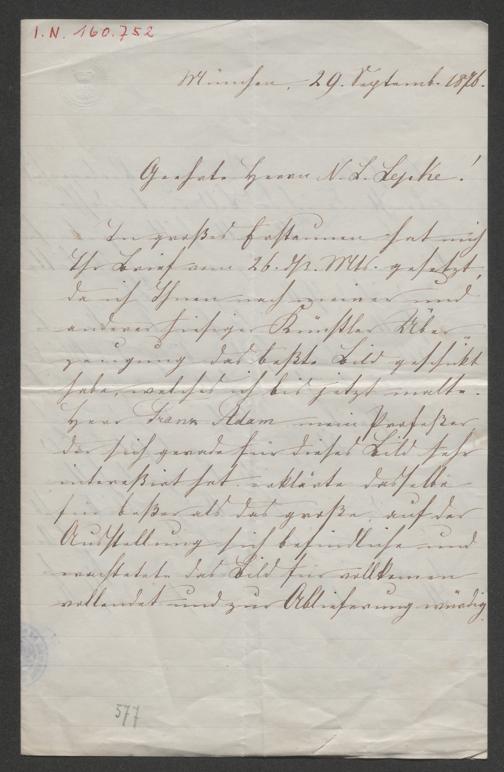 I.N. 160.752
München, 29. Septemb. 1876.
Geehrte Herrn N. L. Lepke!
In großes Erstaunen hat mich
Ihr Brief vom 26. Mts. gesetzt,
da ich Ihnen nach meiner und
anderer hiesiger Künstler Über
zeugung das beßte Bild geschikt
habe, welches ich bis jetzt malte.
Herr Franz Adam mein Profeßer,
der sich gerade für dieses Bild sehr
intereßirt hat erklärte dasselbe
für beßer als das große, auf der
Ausstellung sich befindliche und
erachtete das Bild für vollkomen
vollendet und zur Ablieferung würdig
577